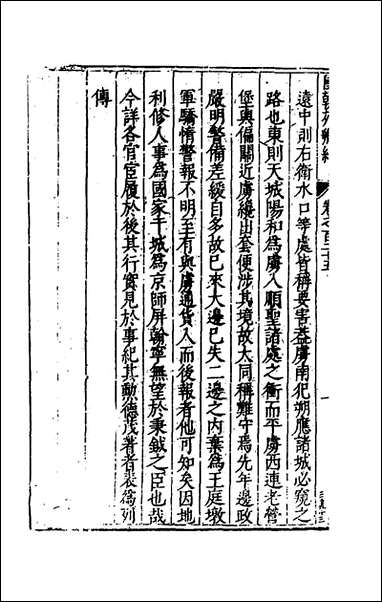 國朝列卿紀
卷之百二十五
一
遠中則右衛水口等處皆稱要害葢虜南犯朔應諸城必窺之
路也東則天城陽和為虜入順聖諸處之衝而平虜西連老營
堡與偏關近虜纔出套便涉其境故大同稱難守焉先年邊政
嚴明警備差緩自多故已來大邊已失二邊之內棄為王庭墩
軍驕惰警報不明至有與虜通貨入而後報者他可知矣因地
利修人事為國家干城為京師屏翰寧無望於秉鉞之臣也哉
今詳各官宦履於後其行實見於事紀其勳德茂著者表為列
傳